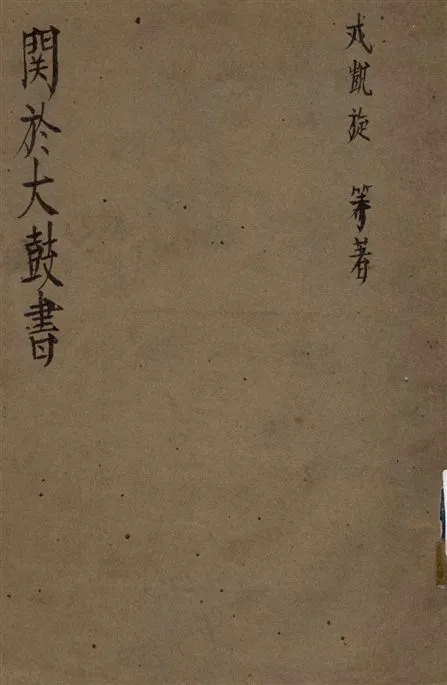 凱旋 等著
関於大鼓書